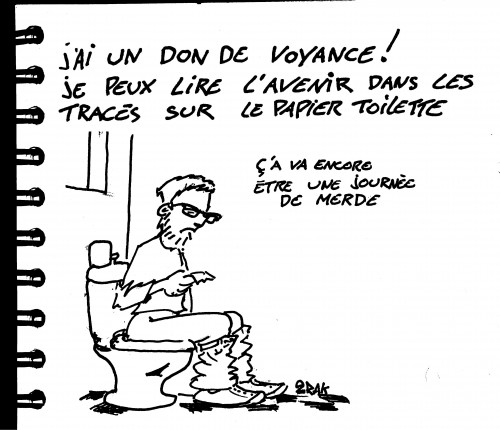 J'AI UN DON DE VOYANCE!
JE PEUX LIRE L'AVENIR DANS LES
TRACES SUR LE PAPIER TOILETTE
Ç'A VA ENCORE
ÊTRE UNE JOURNÉE
DE MERDE
ZRAK